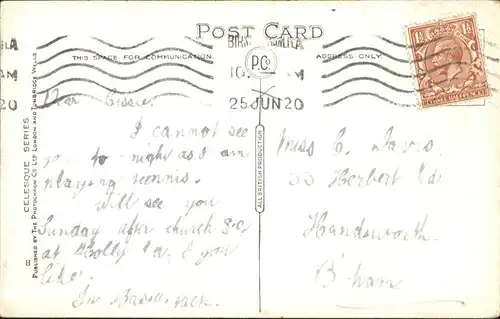 POST CARD
THIS SPACE FOR COMMUNICATION.
ADDRESS ONLY.
P.Co
25 JUN 20
CELESQUE SERIES
PUBLISHED BY THE PHOTOCHROM CO LTD LONDON AND TUNBRIDGE WELLS
B
ALL BRITISH PRODUCTION
Dear Cissie,
I cannot see
you to-night as I am
playing tennis.
Will see you
Sunday after church 8-0
at Holly if you
like.
In
Miss C. Davis
Herbert Rd
Handsworth.
B'ham